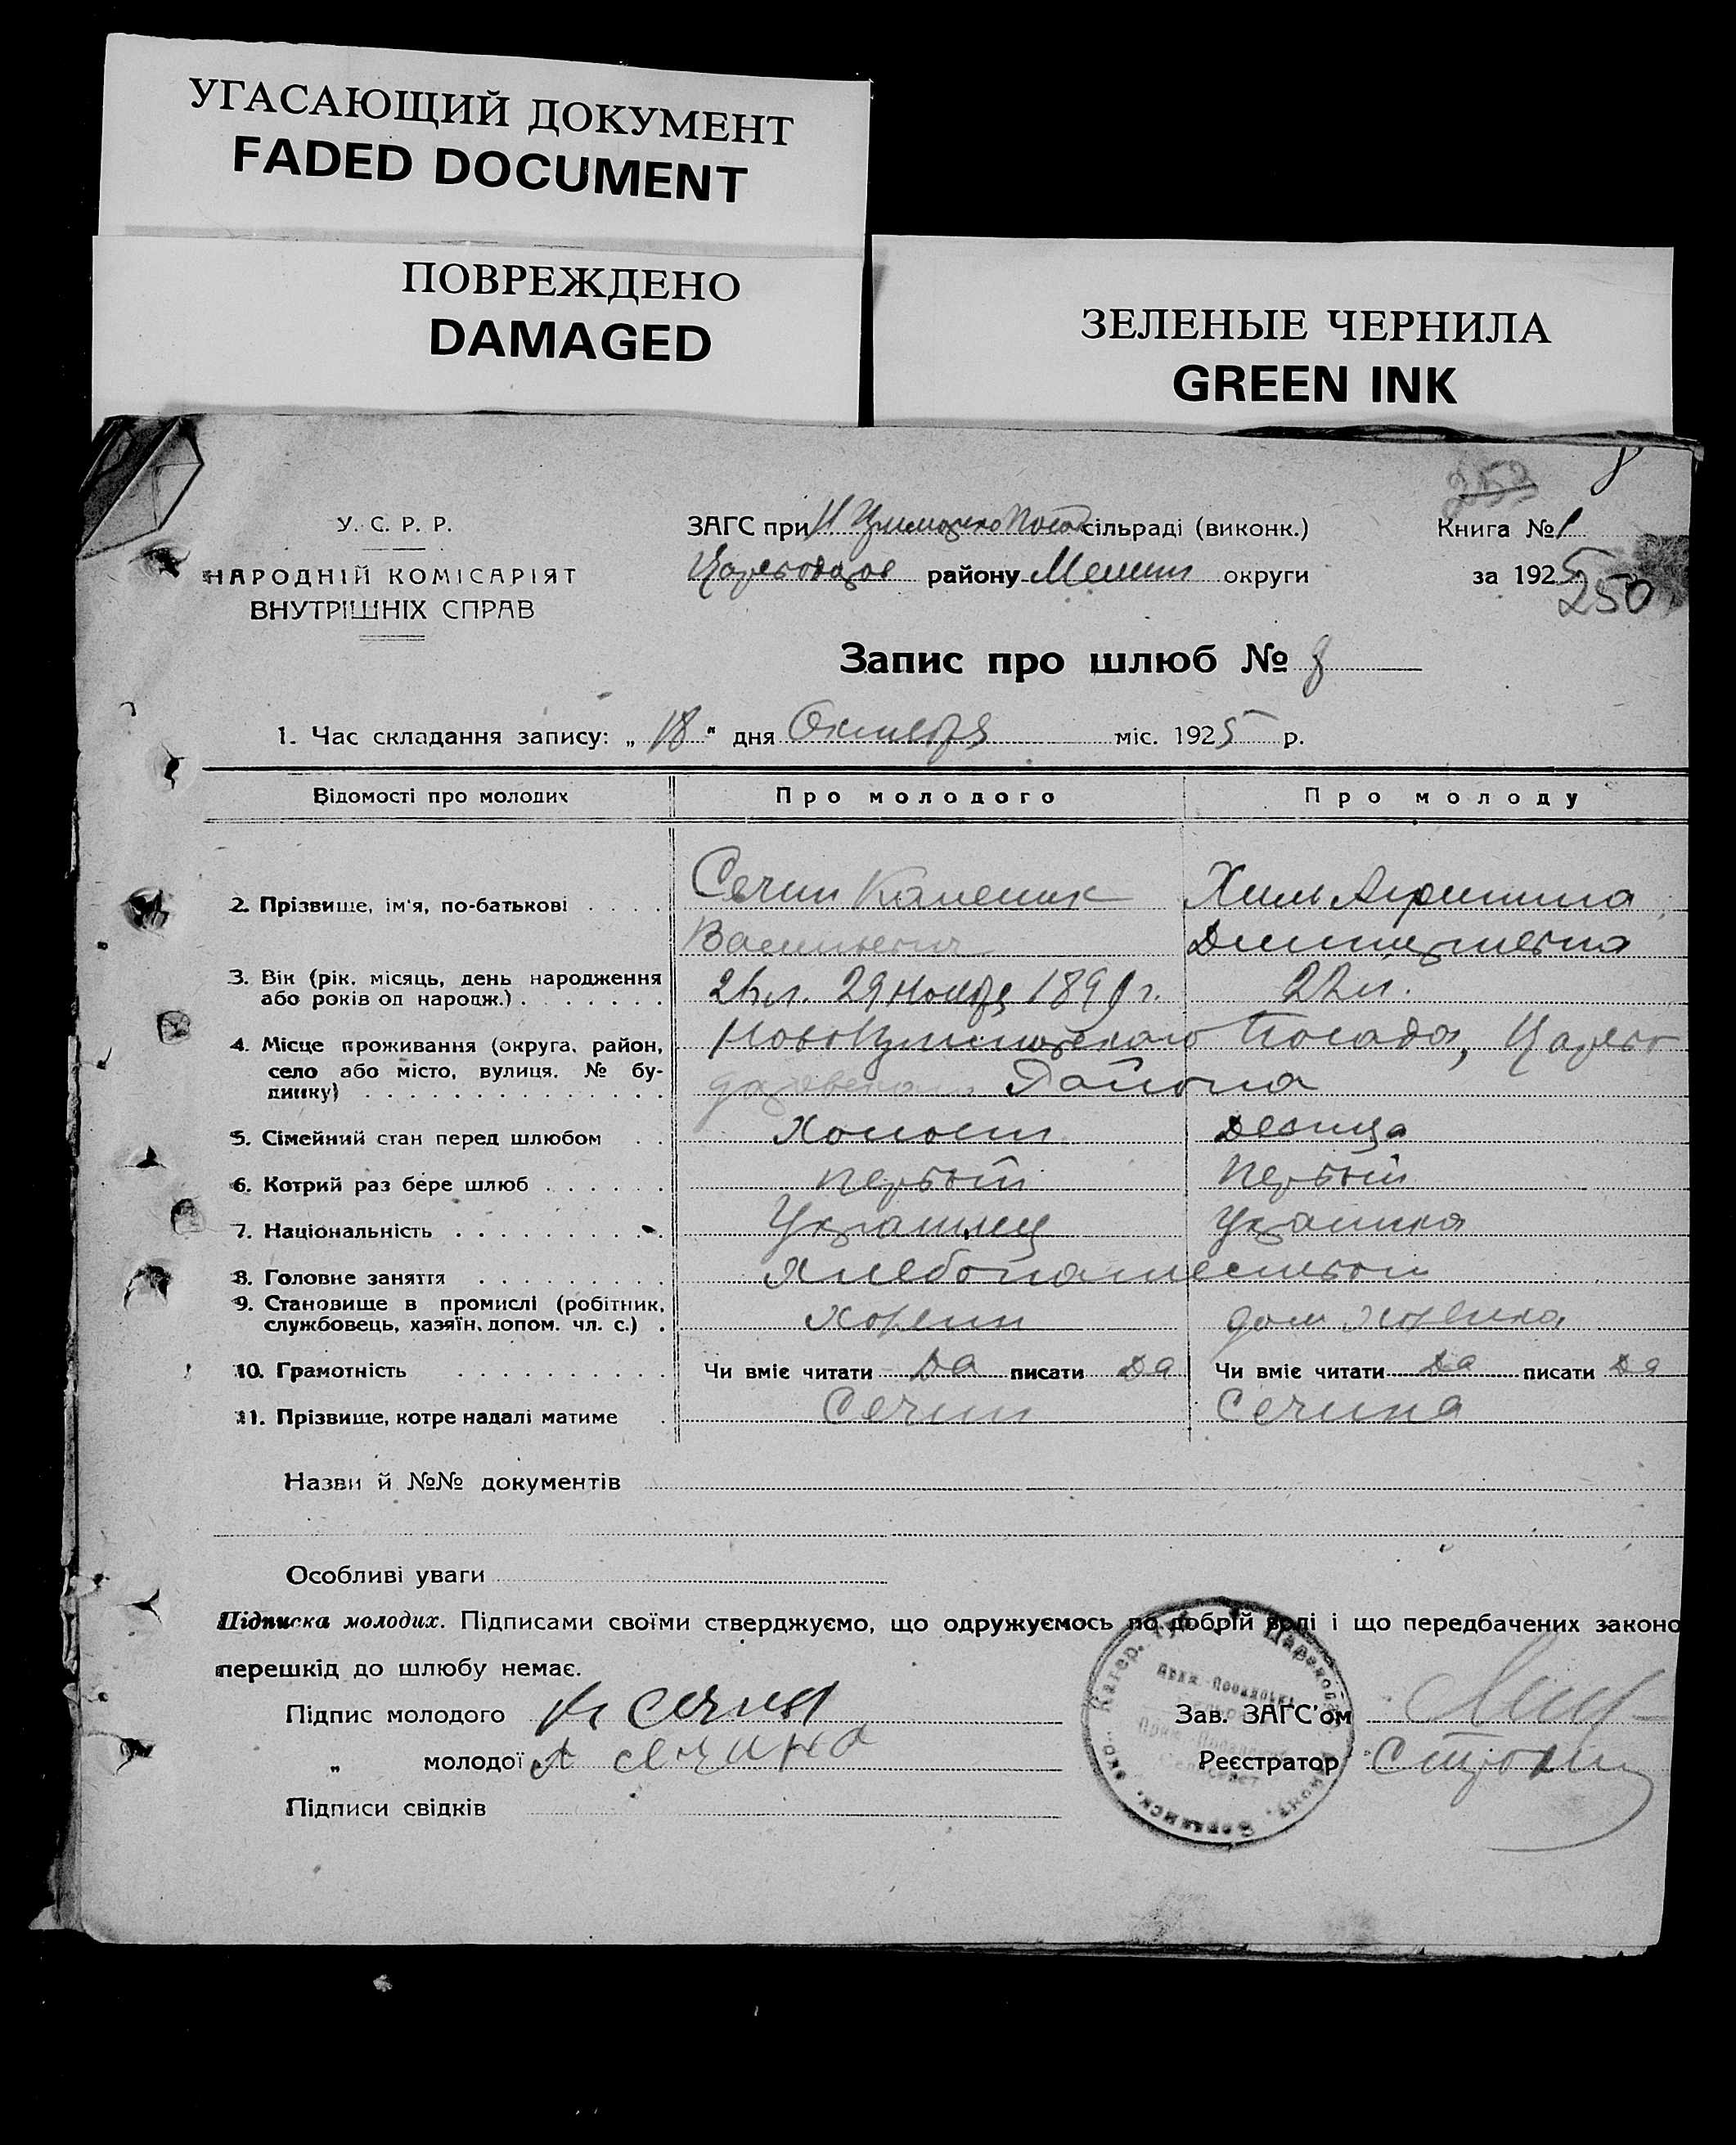 УГАСАЮЩИЙ ДОКУМЕНТ
FADED DOCUMENT
ПОВРЕЖДЕНО
DAMAGED
ЗЕЛЕНЫЕ ЧЕРНИЛА
GREEN INK
253
У. С. Р. Р.
НАРОДНІЙ КОМІСАРІЯТ
ВНУТРІШНІХ СПРАВ
ЗАГС при сільраді (виконк.)
району округи
Книга № 1
за 1925
250
Запис про шлюб № 8
1. Час складання запису: „ 18 " дня Октября міс. 1925 р.
Відомості про молодих Про молодого Про молоду
2. Прізвище, ім'я, по-батькові Сечин Каленик Хиль Агрипина
Васильевич Дмитриевна
3. Вік (рік, місяць, день народження
або років од народж.) 26 л. 29 Ноября 1899 г. 22 л.
4. Місце проживання (округа, район, Посада, Царево
село або місто, вулиця, № бу-
динку) Района
5. Сімейний стан перед шлюбом Холост Девица
6. Котрий раз бере шлюб первый первый
7. Національність Украинец
8. Головне заняття Хлебопашеством
9. Становище в промислі (робітник,
службовець, хазяїн, допом. чл. с.) Хозяин дом хозяйка
10. Грамотність Чи вміє читати Да писати Да Чи вміє читати Да писати Да
11. Прізвище, котре надалі матиме Сечин Сечина
Назви й №№ документів
Особливі уваги
Підписка молодих. Підписами своїми стверджуємо, що одружуємось по добрій волі і що передбачених законо
перешкід до шлюбу немає.
Підпис молодого К Сечин
„ молодої А Сечина
Підписи свідків
Зав. ЗАГС'ом
Реєстратор